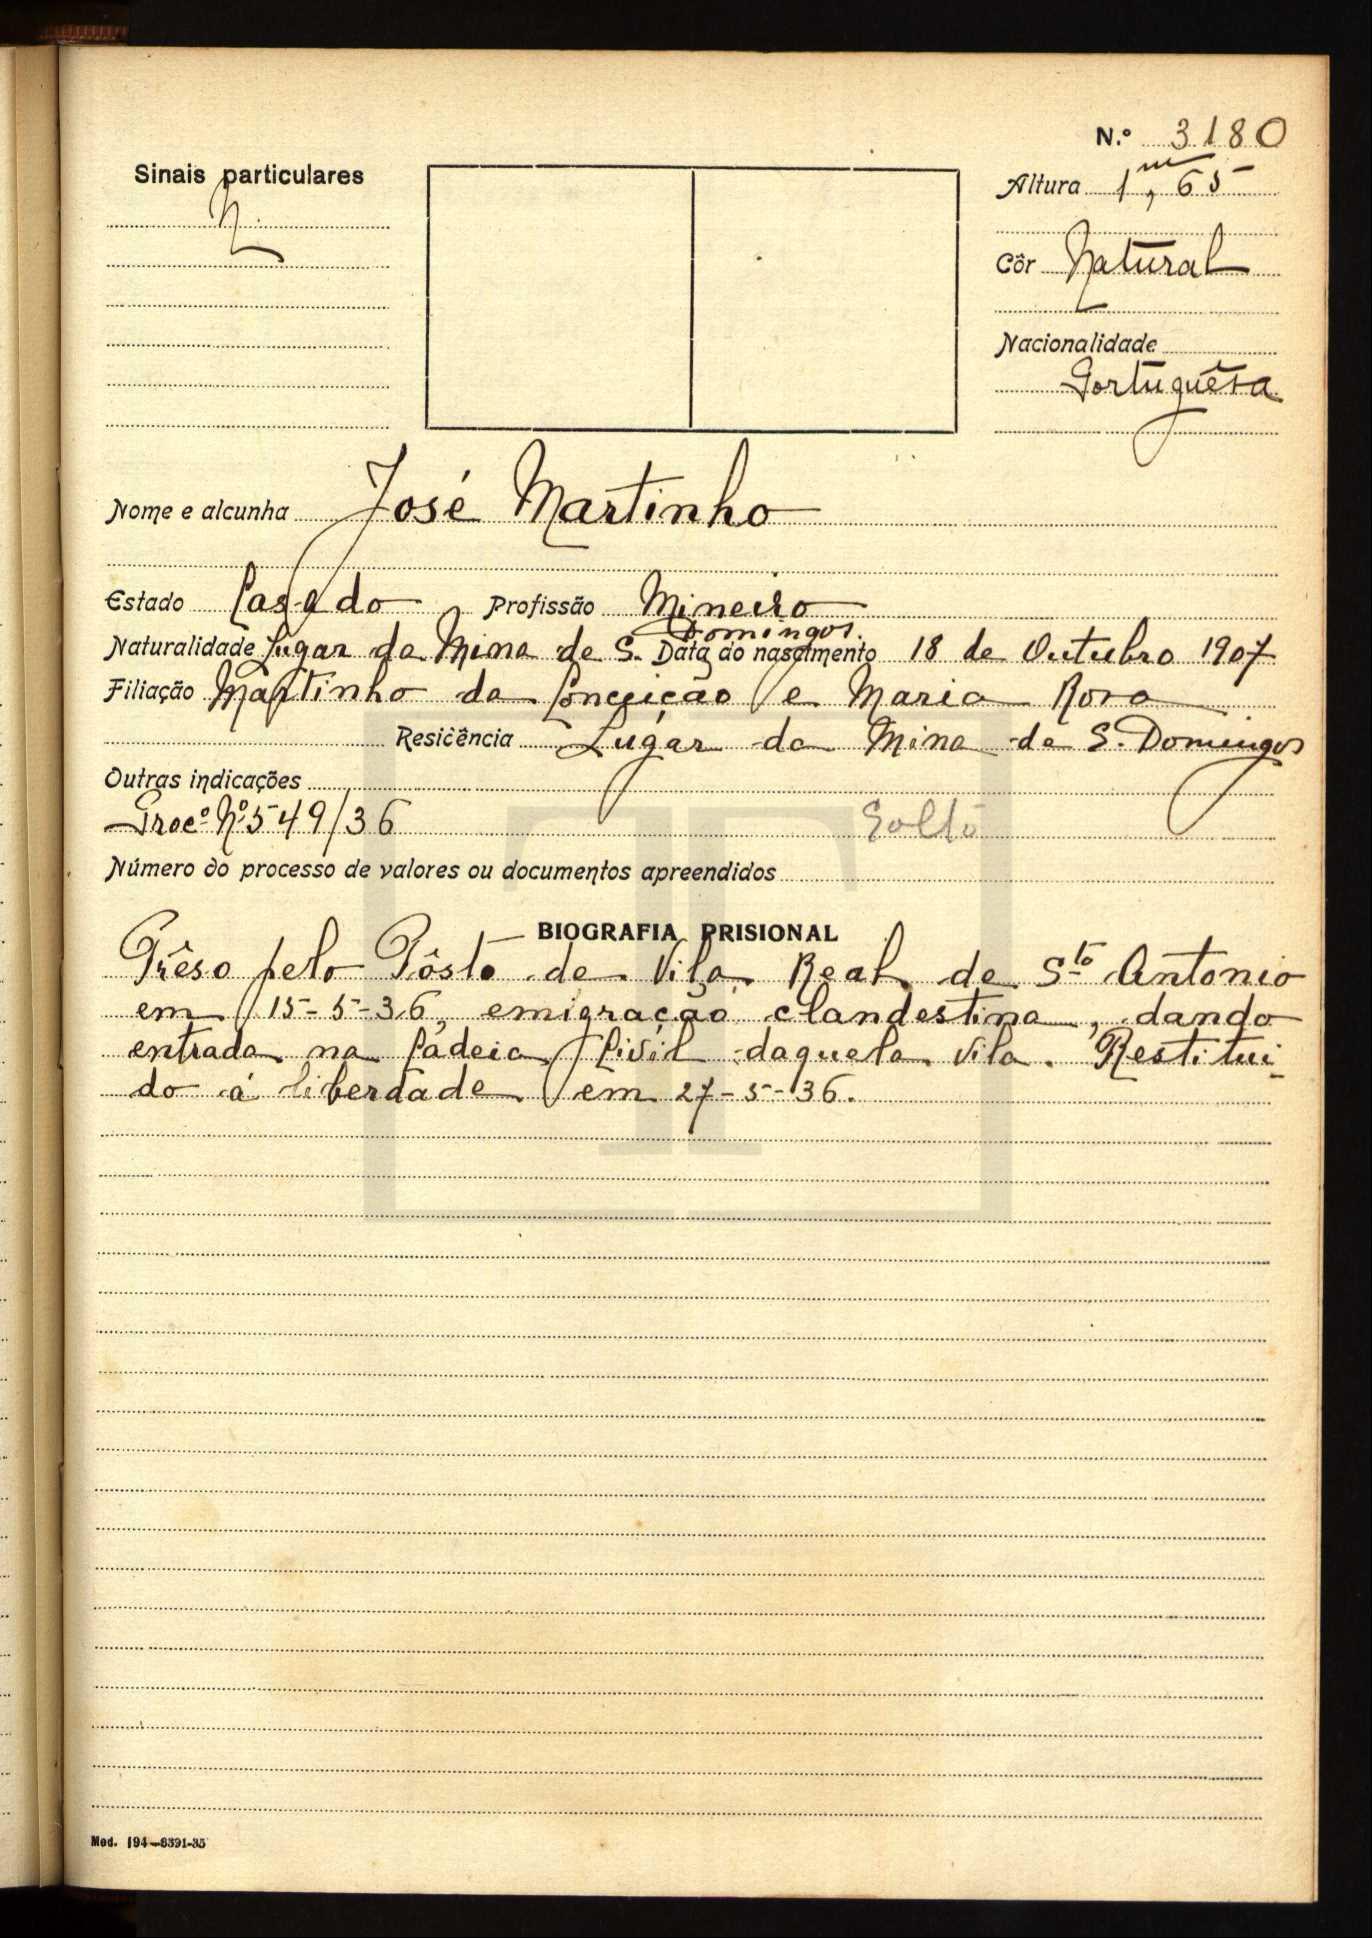 N.º 3180
Sinais particulares
N.
Altura 1m,65
Côr Natural
Nacionalidade
Portuguêsa
Nome e alcunha José Martinho
Estado Casado Profissão Mineiro
Naturalidade Lugar da Mina de S. Domingos. Data do nascimento 18 de Outubro 1907
Filiação Martinho da Conceição e Maria Rosa
Residência Lugar da Mina de S. Domingos
Outras indicações
Procº Nº 549/36 Solto
Número do processo de valores ou documentos apreendidos
BIOGRAFIA PRISIONAL
Prêso pelo Pôsto de Vila Real de Sto Antonio
em 15-5-36, emigração clandestina, dando
entrada na Cadeia Civil daquela Vila. Restitui-
do á liberdade em 27-5-36.
Mod. 194-8391-35